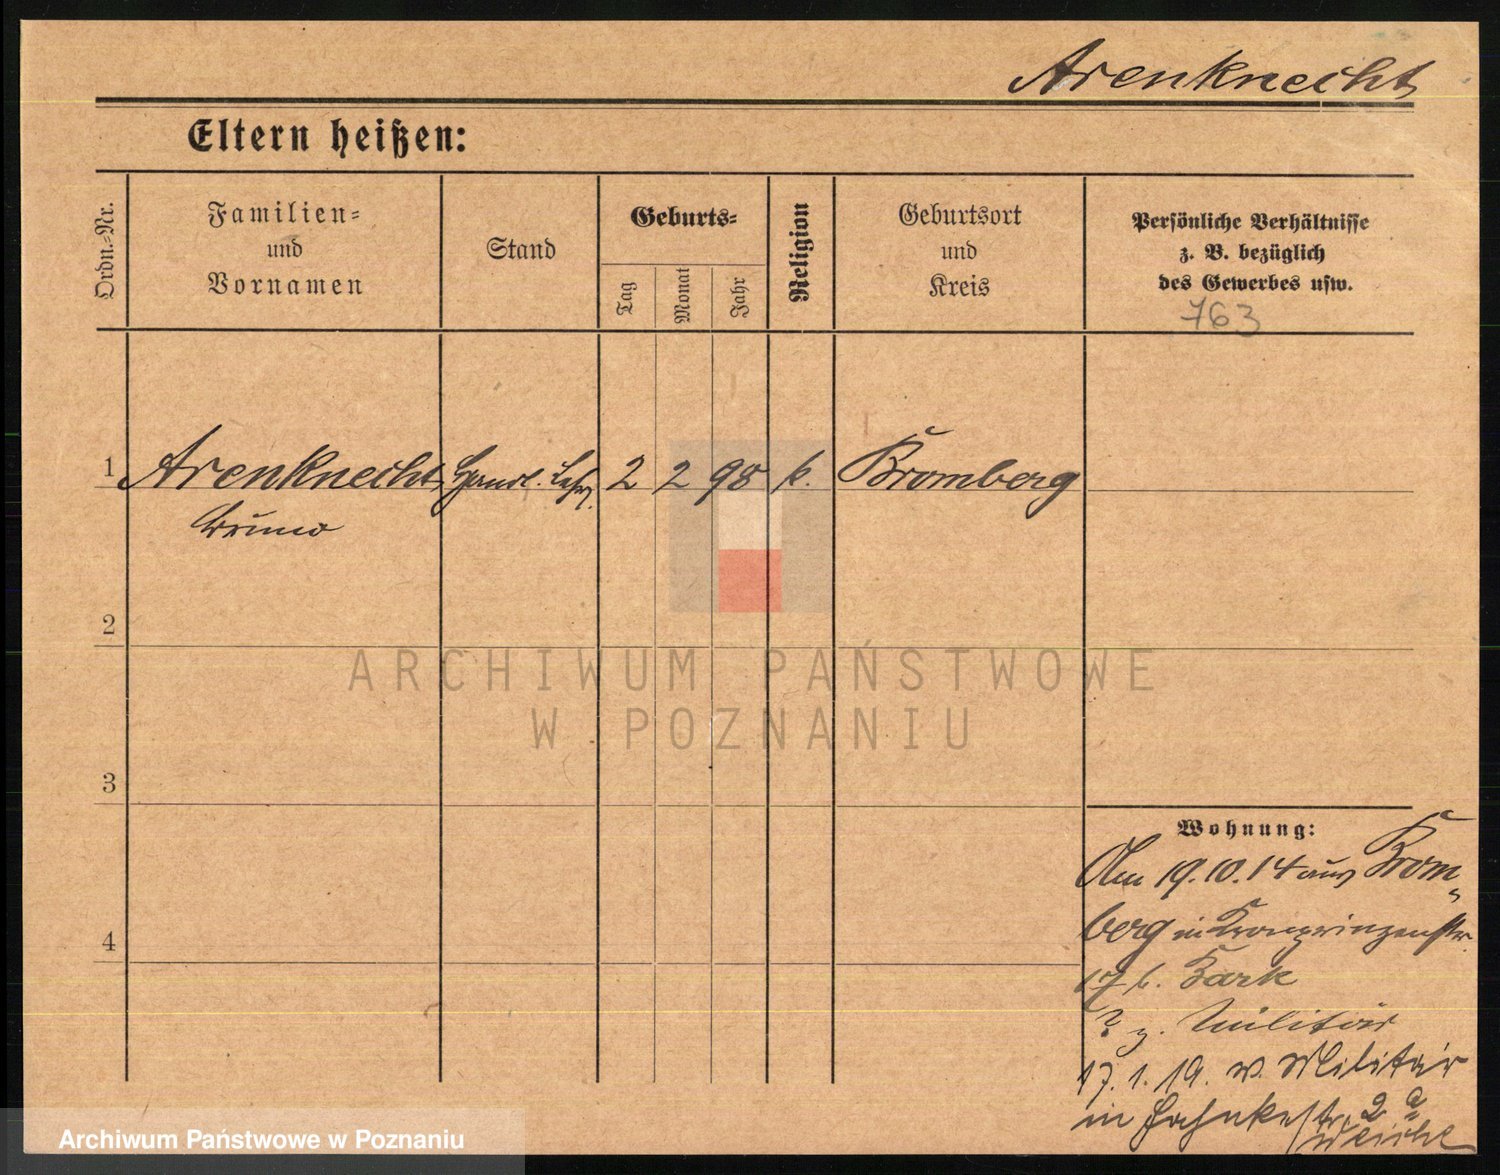 Arenknecht
Eltern heißen:
Ordn.-Nr.
Familien-
und
Vornamen
Stand
Geburts-
Tag
Monat
Jahr
Religion
Geburtsort
und
Kreis
Persönliche Verhältnisse
z. B. bezüglich
des Gewerbes usw.
763
1 Arenknecht, Handl. Lehr. 2 2 98 k. Bromberg
Bruno
2
ARCHIWUM PAŃSTWOWE
W POZNANIU
3
4
Wohnung:
Am 19.10.14 aus Brom-
berg in Kronprinzenstr.
17 b. Bark
? z. Militär
17.1.19. v. Militär
in 2a
Archiwum Państwowe w Poznaniu